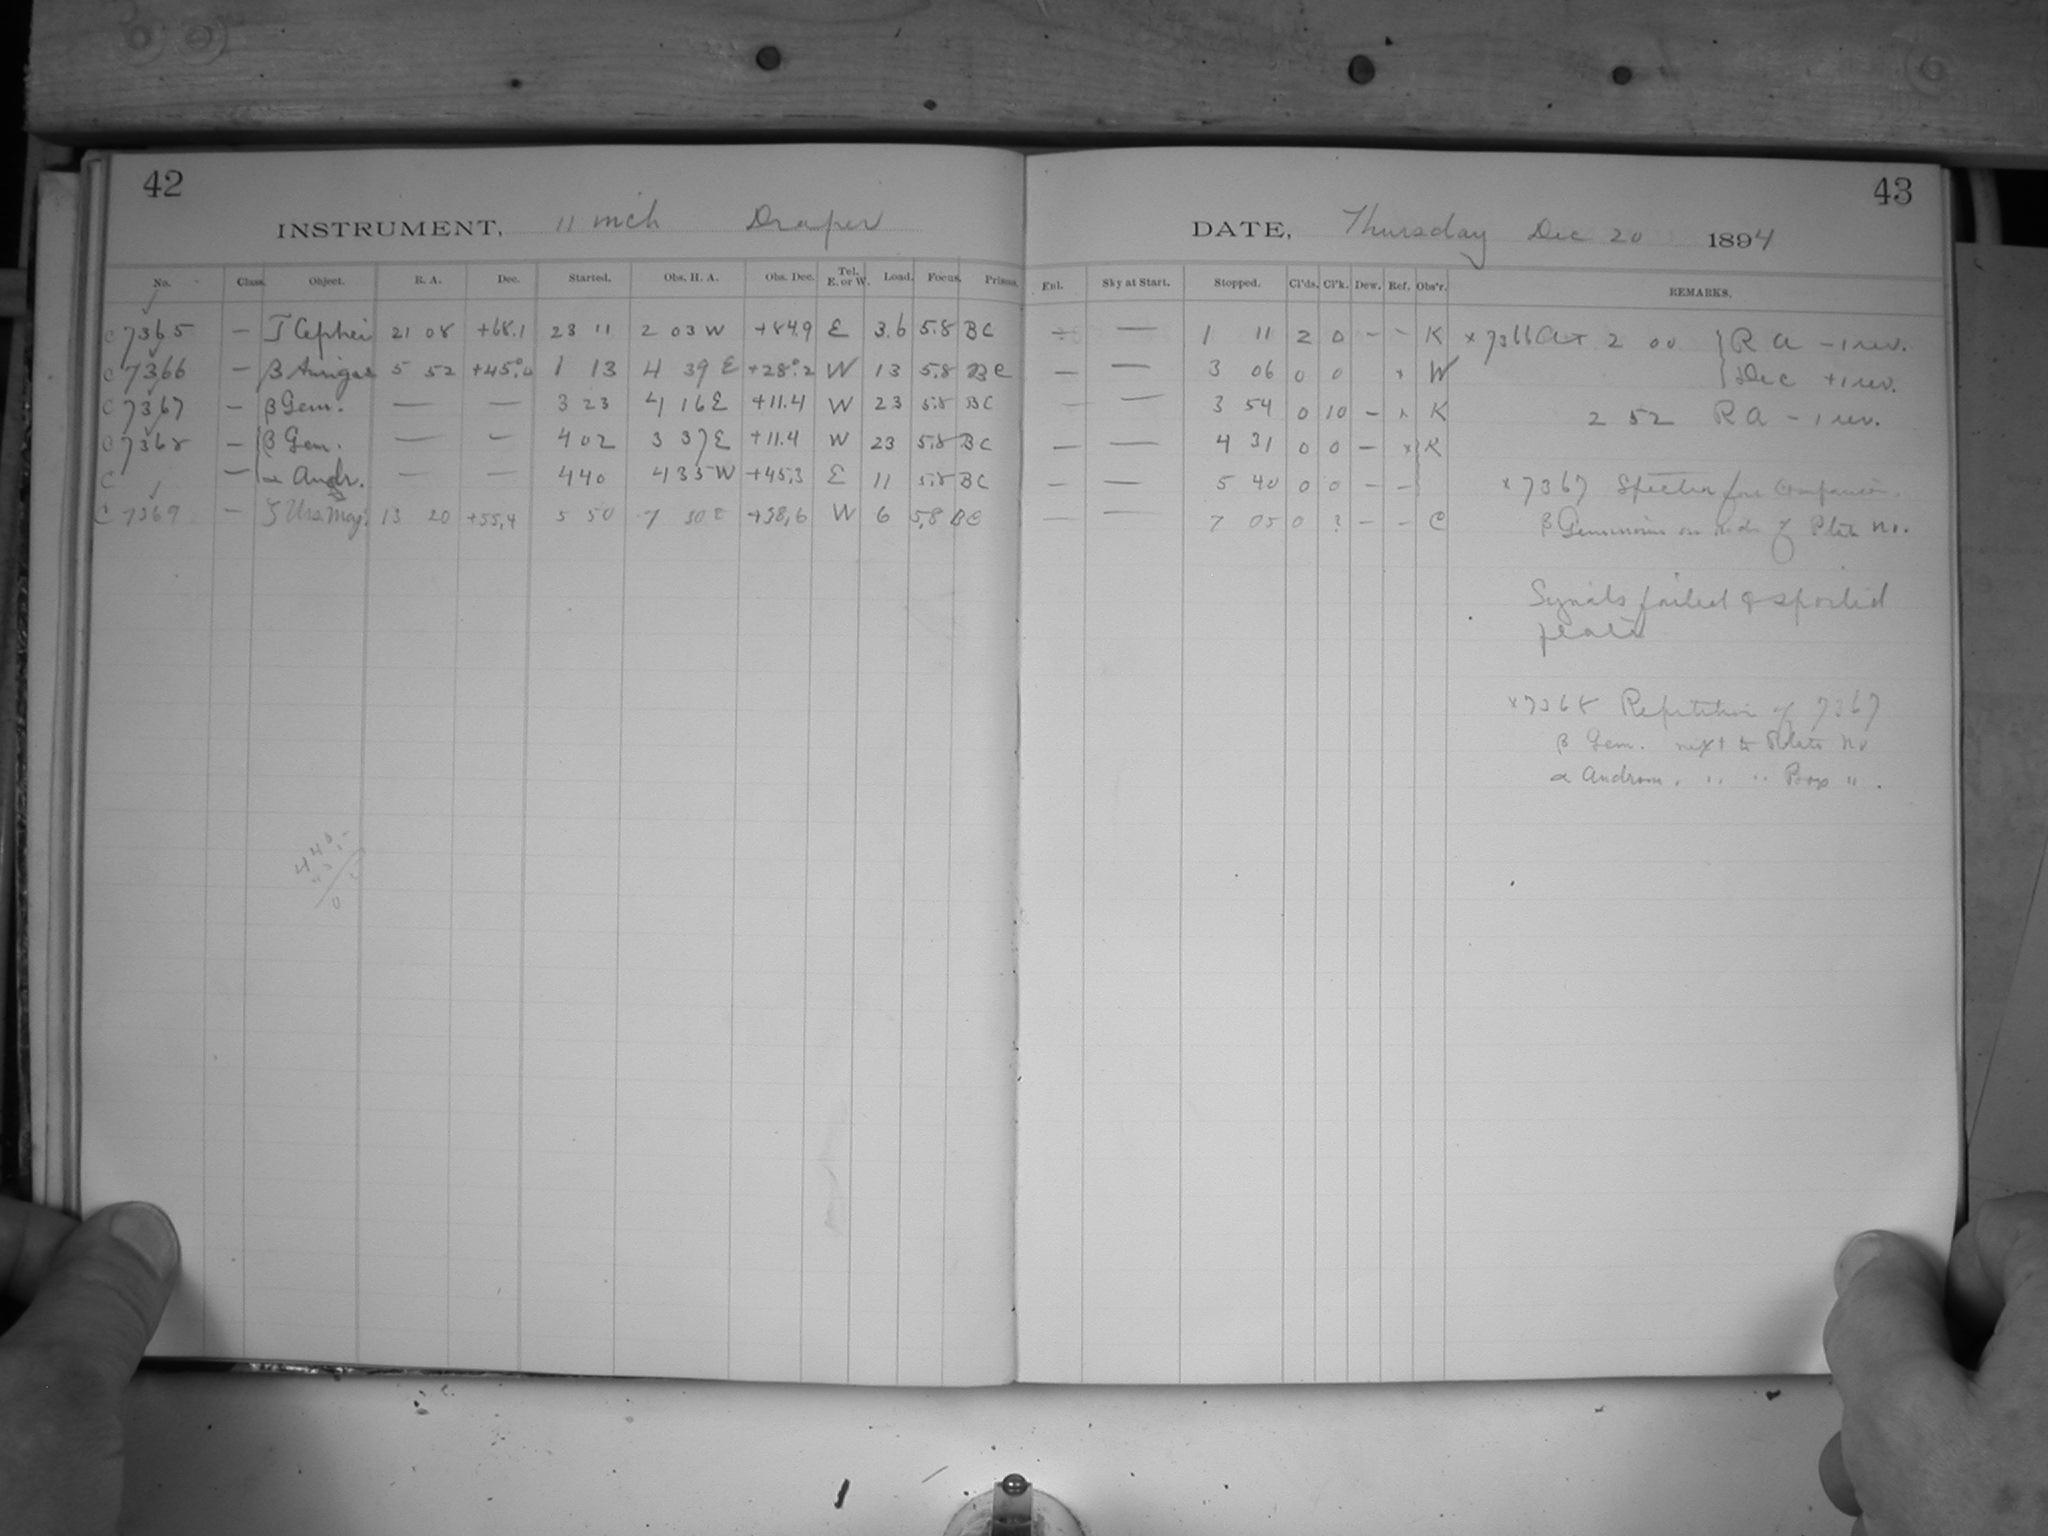 42
INSTRUMENT, 11 inch Draper
No. Class. Object. R. A. Dec. Started. Obs. H. A. Obs. Dec. Tel. E. or W. Load. Focus. Prisms.
C 7365 — T Cephei 21 08 +68.1 23 11 2 03 W +84.9 E 3.6 5.8 BC
C 7366 — β Aurigae 5 52 +45.0 1 13 4 39 E +28.2 W 13 5.8 BC
C 7367 — β Gem. — — 3 23 4 16 E +11.4 W 23 5.8 BC
C 7368 — β Gem. — — 4 02 3 37 E +11.4 W 23 5.8 BC
C — α Andr. — — 4 40 4 35 W +45.3 E 11 5.8 BC
C 7369 — ζ Urs. Maj. 13 20 +55.4 5 50 7 30 E +38.6 W 6 5.8 BC
43
DATE, Thursday Dec 20 1894
Enl. Sky at Start. Stopped. Cl'ds. Cl'k. Dew. Ref. Obs'r. REMARKS.
— 1 11 2 0 — — K x 7366 At 2 00 { R A — 1 rev.
— — 3 06 0 0 x W { Dec + 1 rev.
— — 3 54 0 10 — x K 2 52 R A — 1 rev.
— — 4 31 0 0 — x K
— — 5 40 0 0 — — x 7367 Spectra for Comparison.
— — 7 05 0 ? — — C β Geminorum on side of Plate No.
Signals failed & spoiled
plate
x 7368 Repetition of 7367
β Gem. next to Plate No
α Androm. " " Box " .